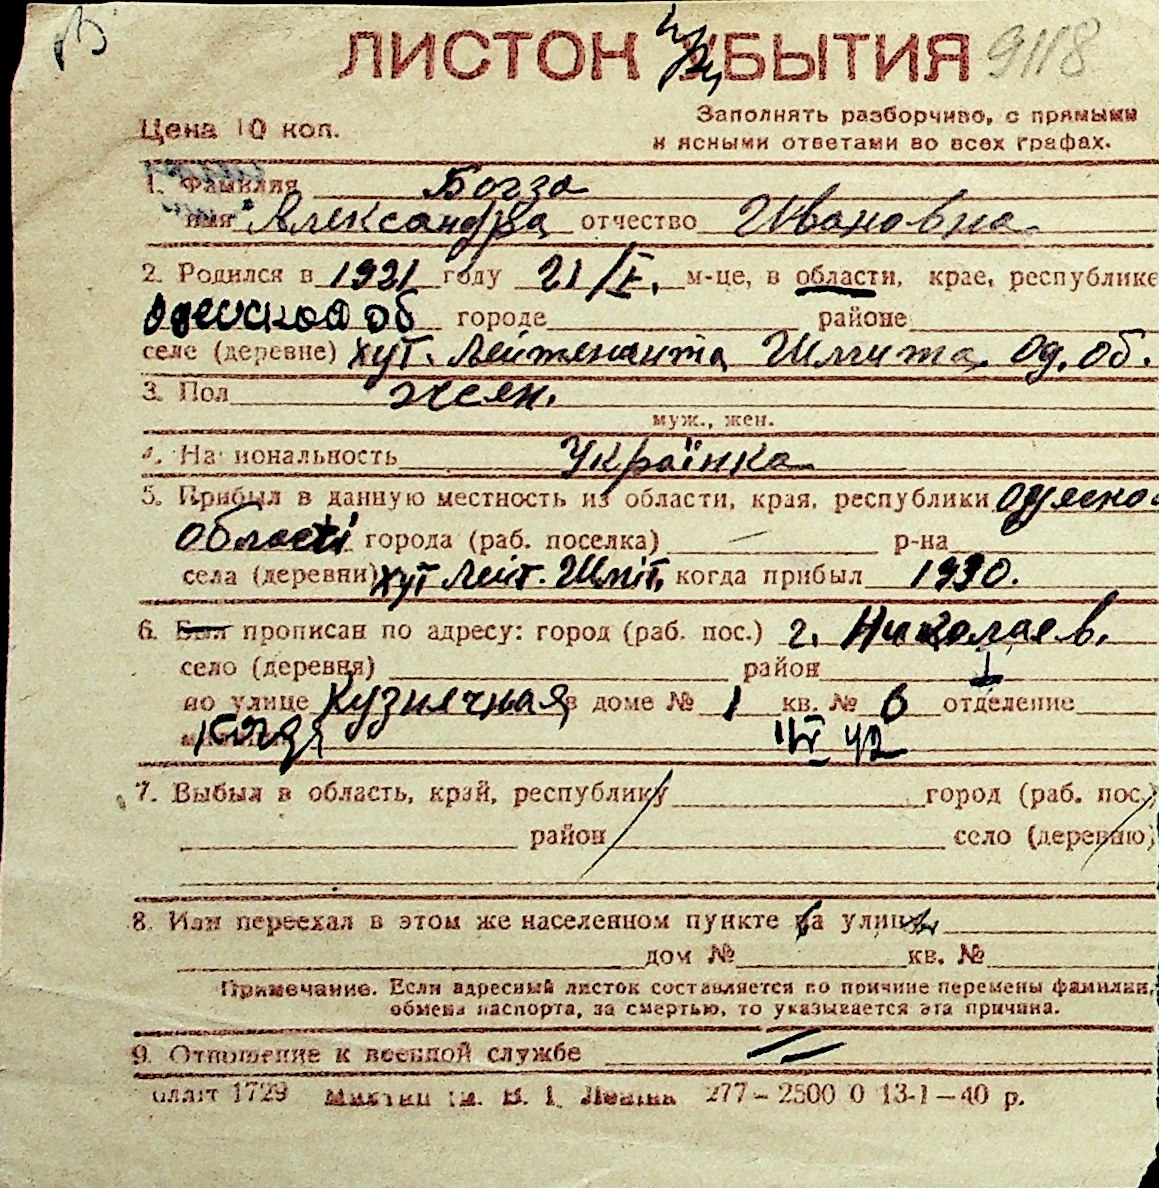 ЛИСТОК УБЫТИЯ 9118
Цена 10 коп.
Заполнять разборчиво, с прямыми
и ясными ответами во всех графах.
1. Фамилия Богза
имя Александра отчество Ивановна
2. Родился в 1921 году 21/V. м-це, в области, крае, республике
Одесской об городе районе
селе (деревне) хут. Лейтенанта Шмита Од. об.
3. Пол жен.
муж., жен.
4. Национальность Українка
5. Прибыл в данную местность из области, края, республики Одеско
області города (раб. поселка) — р-на
села (деревни) хут Лейт. Шміт. когда прибыл 1930.
6. Был прописан по адресу: город (раб. пос.) г. Николаев.
село (деревня) район
по улице Кузнечная в доме № 1 кв. № 6 отделение 1
милиции
7. Выбыл в область, край, республику город (раб. пос.)
район село (деревню)
8. Или переехал в этом же населенном пункте на улицу
дом № кв. №
Примечание. Если адресный листок составляется по причине перемены фамилии,
обмена паспорта, за смертью, то указывается эта причина.
9. Отношение к военной службе
1729 277—2500 0 13-1—40 р.